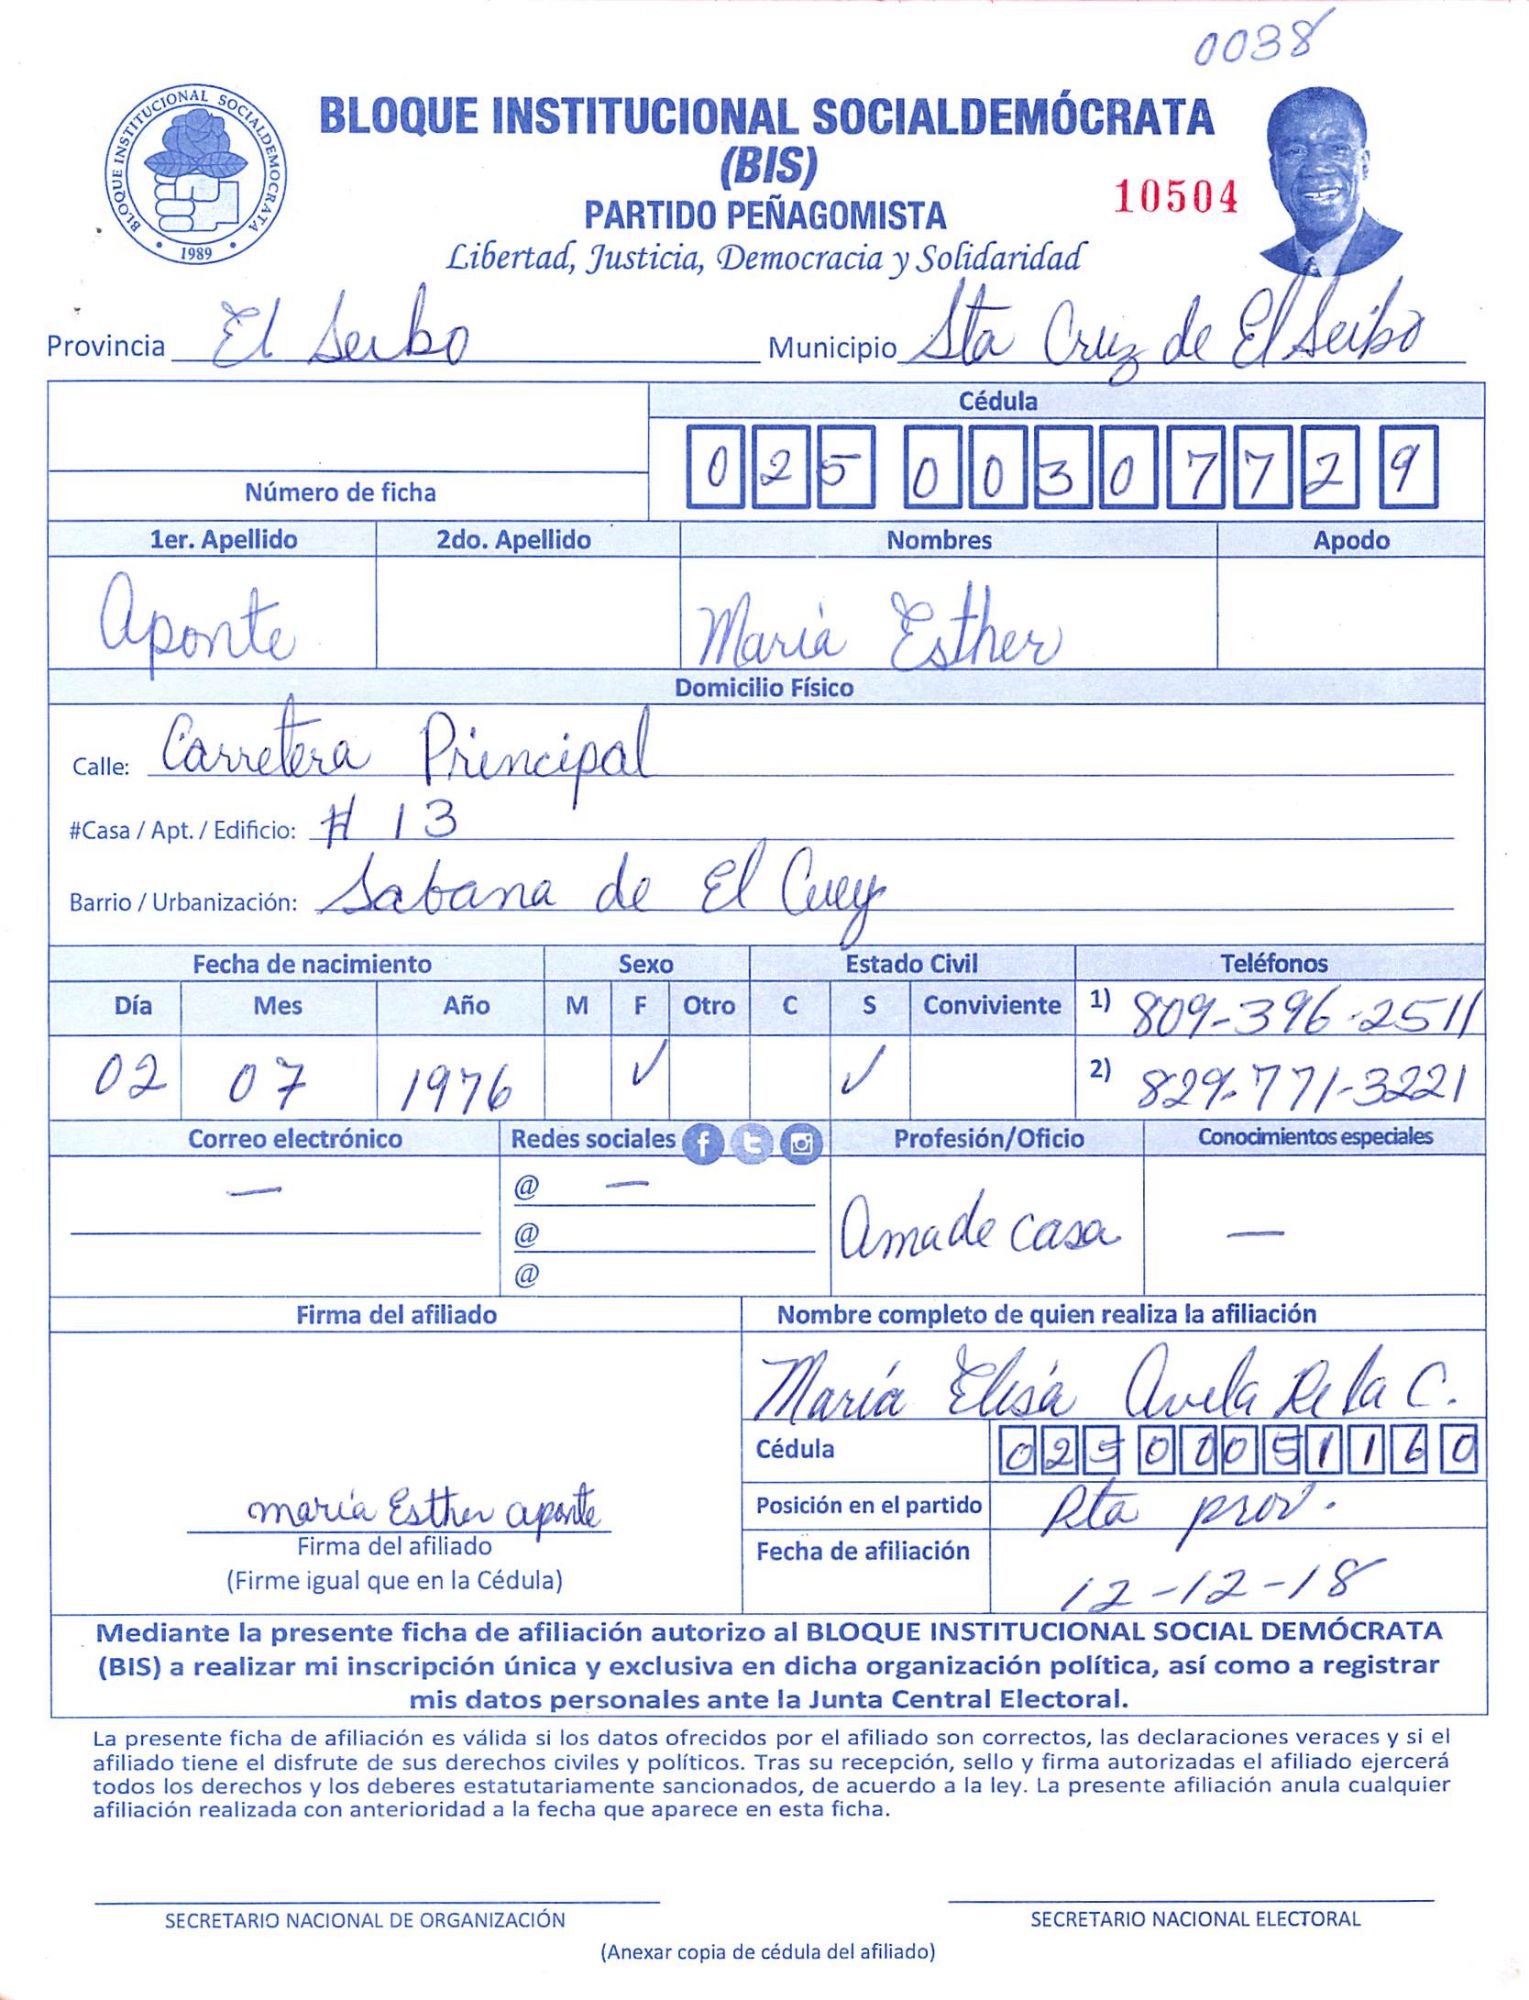 0038
BLOQUE INSTITUCIONAL SOCIALDEMOCRATA
1989
BLOQUE INSTITUCIONAL SOCIALDEMÓCRATA
(BIS)
PARTIDO PEÑAGOMISTA
10504
Libertad, Justicia, Democracia y Solidaridad
Provincia El Seibo Municipio Sta Cruz de El Seibo
Cédula
025 0030772 9
Número de ficha
1er. Apellido 2do. Apellido Nombres Apodo
Aponte María Esther
Domicilio Físico
Calle: Carretera Principal
#Casa / Apt. / Edificio: # 13
Barrio / Urbanización: Sabana de El Cuey
Fecha de nacimiento Sexo Estado Civil Teléfonos
Día Mes Año M F Otro C S Conviviente 1) 809-396-2511
02 07 1976 ✓ ✓ 2) 829-771-3221
Correo electrónico Redes sociales Profesión/Oficio Conocimientos especiales
— @ — Ama de casa —
@
@
Firma del afiliado Nombre completo de quien realiza la afiliación
María Elisa Avila De la C.
Cédula 025 0005116 0
Posición en el partido Pta prov.
maría Esther aponte
Firma del afiliado
(Firme igual que en la Cédula)
Fecha de afiliación 12-12-18
Mediante la presente ficha de afiliación autorizo al BLOQUE INSTITUCIONAL SOCIAL DEMÓCRATA
(BIS) a realizar mi inscripción única y exclusiva en dicha organización política, así como a registrar
mis datos personales ante la Junta Central Electoral.
La presente ficha de afiliación es válida si los datos ofrecidos por el afiliado son correctos, las declaraciones veraces y si el
afiliado tiene el disfrute de sus derechos civiles y políticos. Tras su recepción, sello y firma autorizadas el afiliado ejercerá
todos los derechos y los deberes estatutariamente sancionados, de acuerdo a la ley. La presente afiliación anula cualquier
afiliación realizada con anterioridad a la fecha que aparece en esta ficha.
SECRETARIO NACIONAL DE ORGANIZACIÓN SECRETARIO NACIONAL ELECTORAL
(Anexar copia de cédula del afiliado)